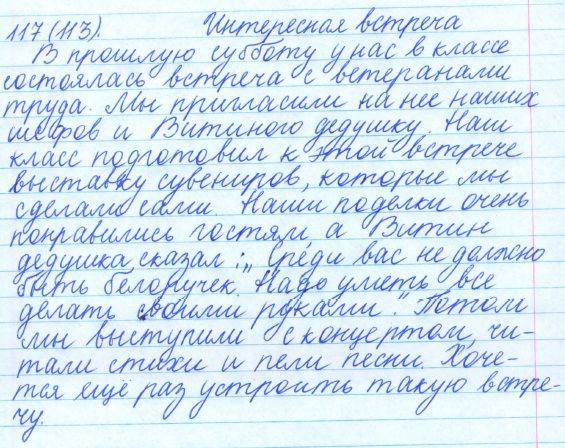 117 (113). Интересная встреча
В прошлую субботу у нас в классе
состоялась встреча с ветеранами
труда. Мы пригласили на нее наших
шефов и Витиного дедушку. Наш
класс подготовил к этой встрече
выставку сувениров, которые мы
сделали сами. Наши поделки очень
понравились гостям, а Витин
дедушка сказал: „Среди вас не должно
быть белоручек. Надо уметь все
делать своими руками". Потом
мы выступили с концертом, чи-
тали стихи и пели песни. Хоче-
тся ещё раз устроить такую встре-
чу.